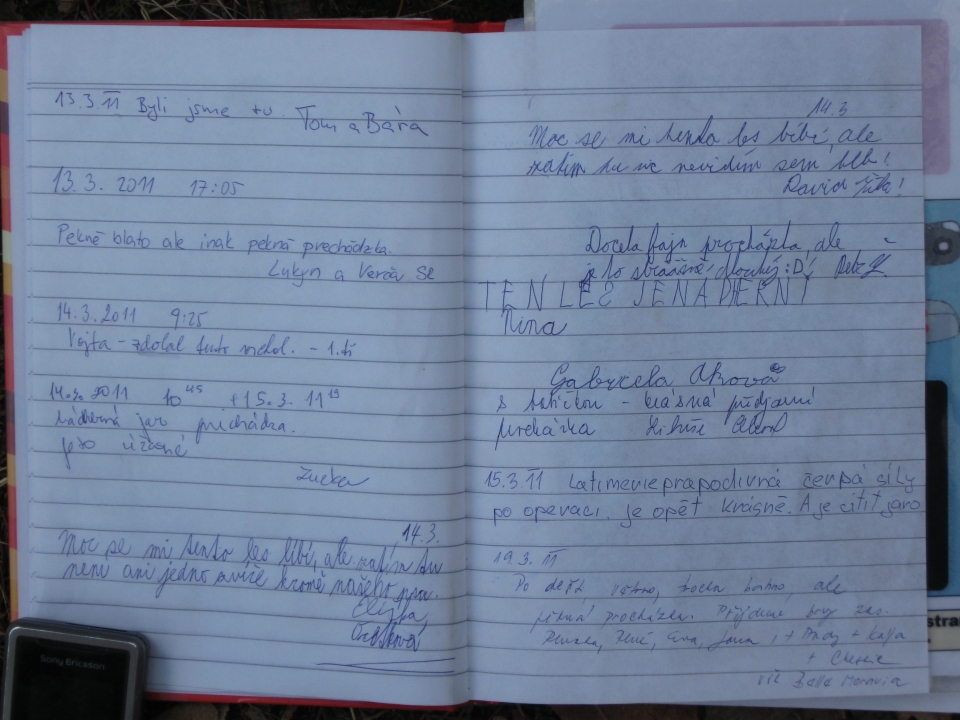 13.3.11 Byli jsme tu Tom a Bára
13.3. 2011 17:05
Pekné blato ale inak pekná prechádzka.
Lukyn a Verča SE
14.3.2011 9:25
Vojta - zdolal tento vrchol. - 1.tř
14.3. 2011 10 45 + 15.3. 11 15
nádherná jar prichádza.
je to úžasné
Zuzka
14.3.
Moc se mi tento les líbí, ale zatím tu
není ani jedno zvíře kromě našeho psa.
Eliška
Sony Ericsson
14.3
Moc se mi tento les líbí, ale
zatím tu nic nevidím sem blb!
David
Docela fajn procházka, ale
je to strašně dlouhý :D,
TEN LES JE NÁDHERNÝ
Nina
Gabriela
s babičkou - krásná
procházka Libuše
15.3.11 Latimerieprapodivná čerpá síly
po operaci. je opět krásně. A je cítit jaro
19.3.11
Po dešti, bahno, ale
pěkná procházka. Přijdeme brzy zas.
René, Eva, Jana, + Andy + Kája
+
viz Bella Moravia
stra